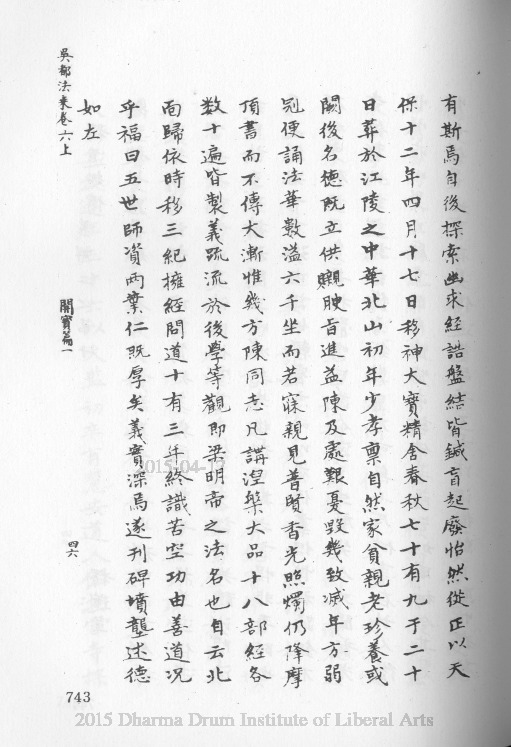 吳都法乘卷六上
闡寶篇一
四六
有斯焉自後探索幽求經誥盤結皆鍼肓起廢怡然從正以天
保十二年四月十七日移神大寶精舍春秋七十有九于二十
日葬於江陵之中華北山初年少孝稟自然家貧親老珍養或
闕後名德既立供䞋腴旨進益陳及處艱憂毀幾致滅年方弱
冠便誦法華數溢六千坐而若寐親見普賢香光照燭仍降摩
頂書而不傳大漸惟幾方陳同志凡講涅槃大品十八部經各
數十遍皆製義疏流於後學等觀即梁明帝之法名也自云北
面歸依時移三紀擁經問道十有三年終識苦空功由善道況
乎福田五世師資兩葉仁既厚矣義實深焉遂刊碑墳壟述德
如左
743
2015-04-17
2015 Dharma Drum Institute of Liberal Arts